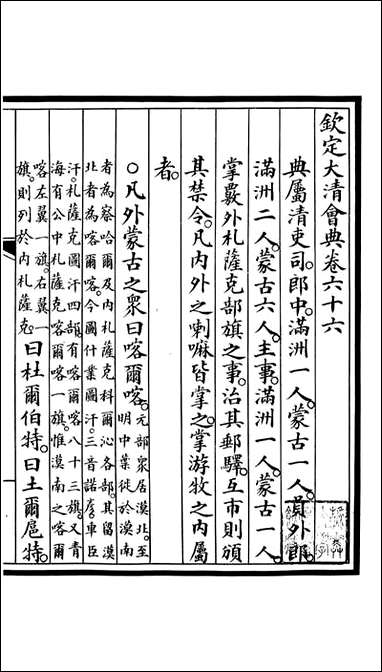 欽定大清會典卷六十六
典屬清吏司。郎中。滿洲一人。蒙古一人。員外郎。
滿洲二人。蒙古六人。主事。滿洲一人。蒙古一人。
掌數外札薩克部旗之事。治其郵驛。互市則頒
其禁令。凡內外之喇嘛皆掌之。掌游牧之內屬
者。
○凡外蒙古之衆曰喀爾喀。元部衆居漠北。至
明中葉徙於漠南
者為察哈爾及內札薩克科爾沁各部。其留漠
北者為喀爾喀。今圖什業圖汗。三音諾彥。車臣
汗。札薩克圖汗四部。有喀爾喀八十三旗。又青
海有公中札薩克喀爾喀一旗。惟漠南之喀爾
喀左翼一旗。右翼一
旗。則列於內札薩克。曰杜爾伯特。曰土爾扈特。